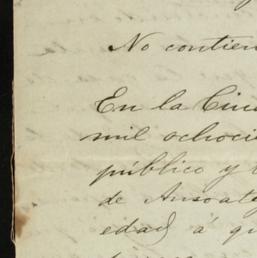 No contien
En la Ciud
mil ochoci
público y
de Ansoate
edad á qu